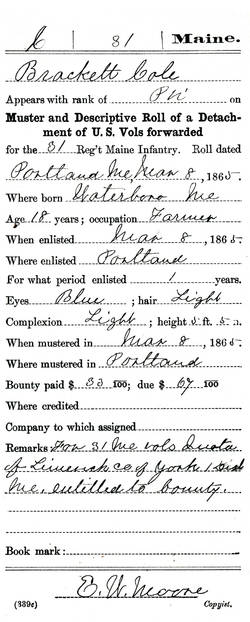 C | 31 | Maine.
Brackett Cole
Appears with rank of Pvt on
Muster and Descriptive Roll of a Detach-
ment of U. S. Vols forwarded
for the 31 Reg't Maine Infantry. Roll dated
Portland Me, Mar 8, 1865.
Where born Waterboro Me
Age 18 years; occupation Farmer
When enlisted Mar 8, 1865.
Where enlisted Portland
For what period enlisted 1 years.
Eyes Blue; hair Light
Complexion Light; height 5 ft. 5 in.
When mustered in Mar 8, 1865.
Where mustered in Portland
Bounty paid $ 33 100; due $ 67 100
Where credited
Company to which assigned
Remarks: For 31 Me Vols Quota
of Limerick co of York 1 Dist
Me, entitled to bounty.
Book mark:
E. W. Moore
(339c) Copyist.